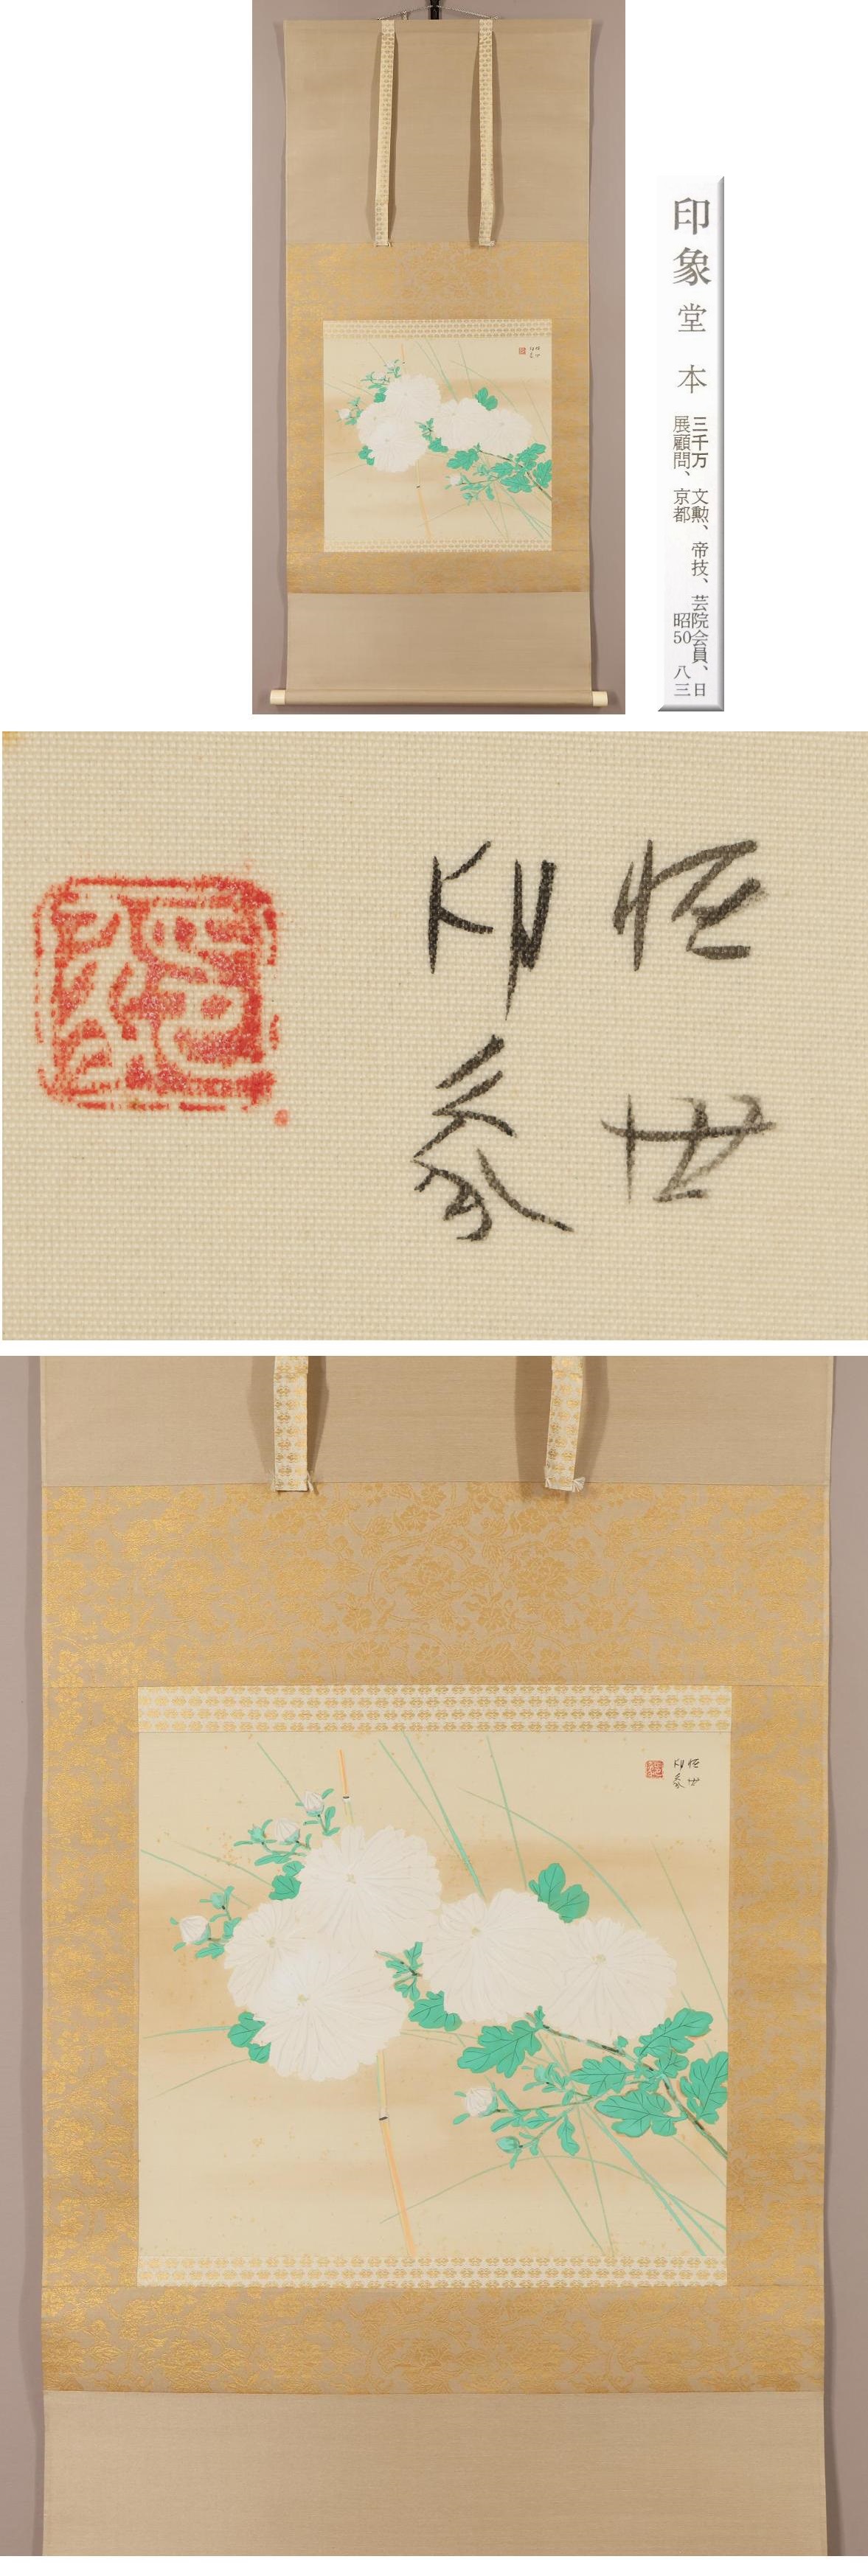 印象 堂本
三千万 文勲、帝技、芸院会員、日
展顧問、京都 昭50 八三
恒世
印象